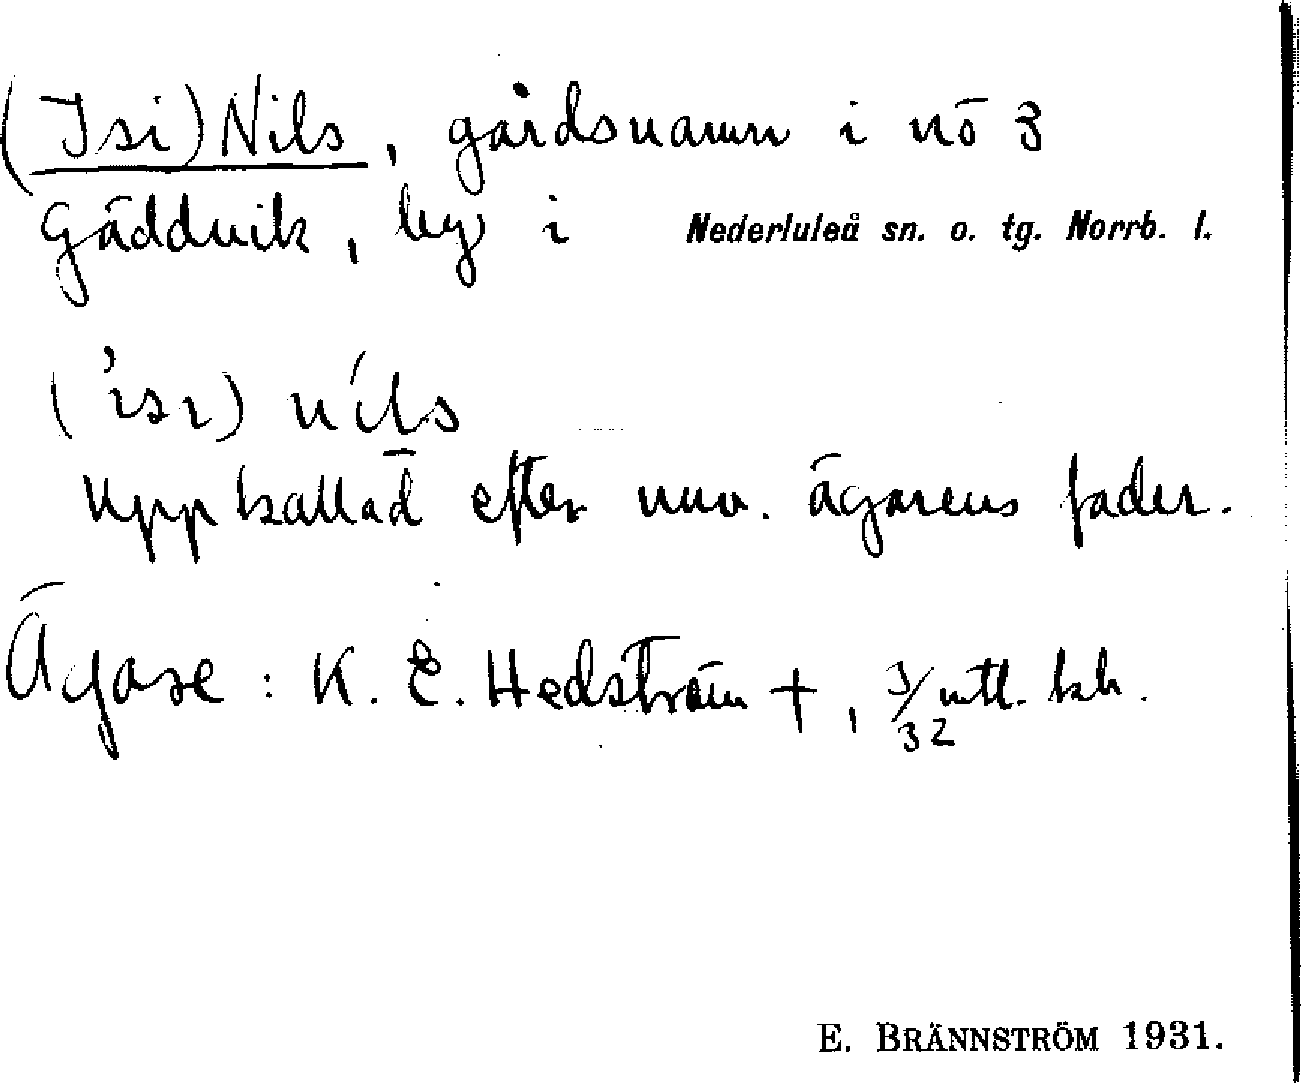 (Isi) Nils, gårdsnamn i nö 3
Gäddvik, by i Nederluleå sn. o. tg. Norrb. l.
('ısı) níls
Uppkallad efter nuv. ägarens fader.
Ägare: K. E. Hedström +, 3/32 mtl. kr.
E. BRÄNNSTRÖM 1931.